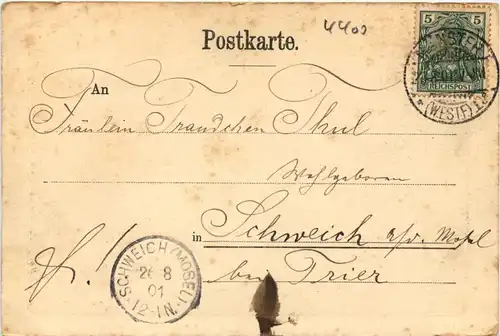 4400
Postkarte.
5 5
REICHSPOST
MÜNSTER
(WESTF)
An
Fräulein Traudchen Skul
Wohlgeboren
in Schweich a/d. Mosel
bei Trier
SCHWEICH (MOSEL)
26 8
01
12-1N.